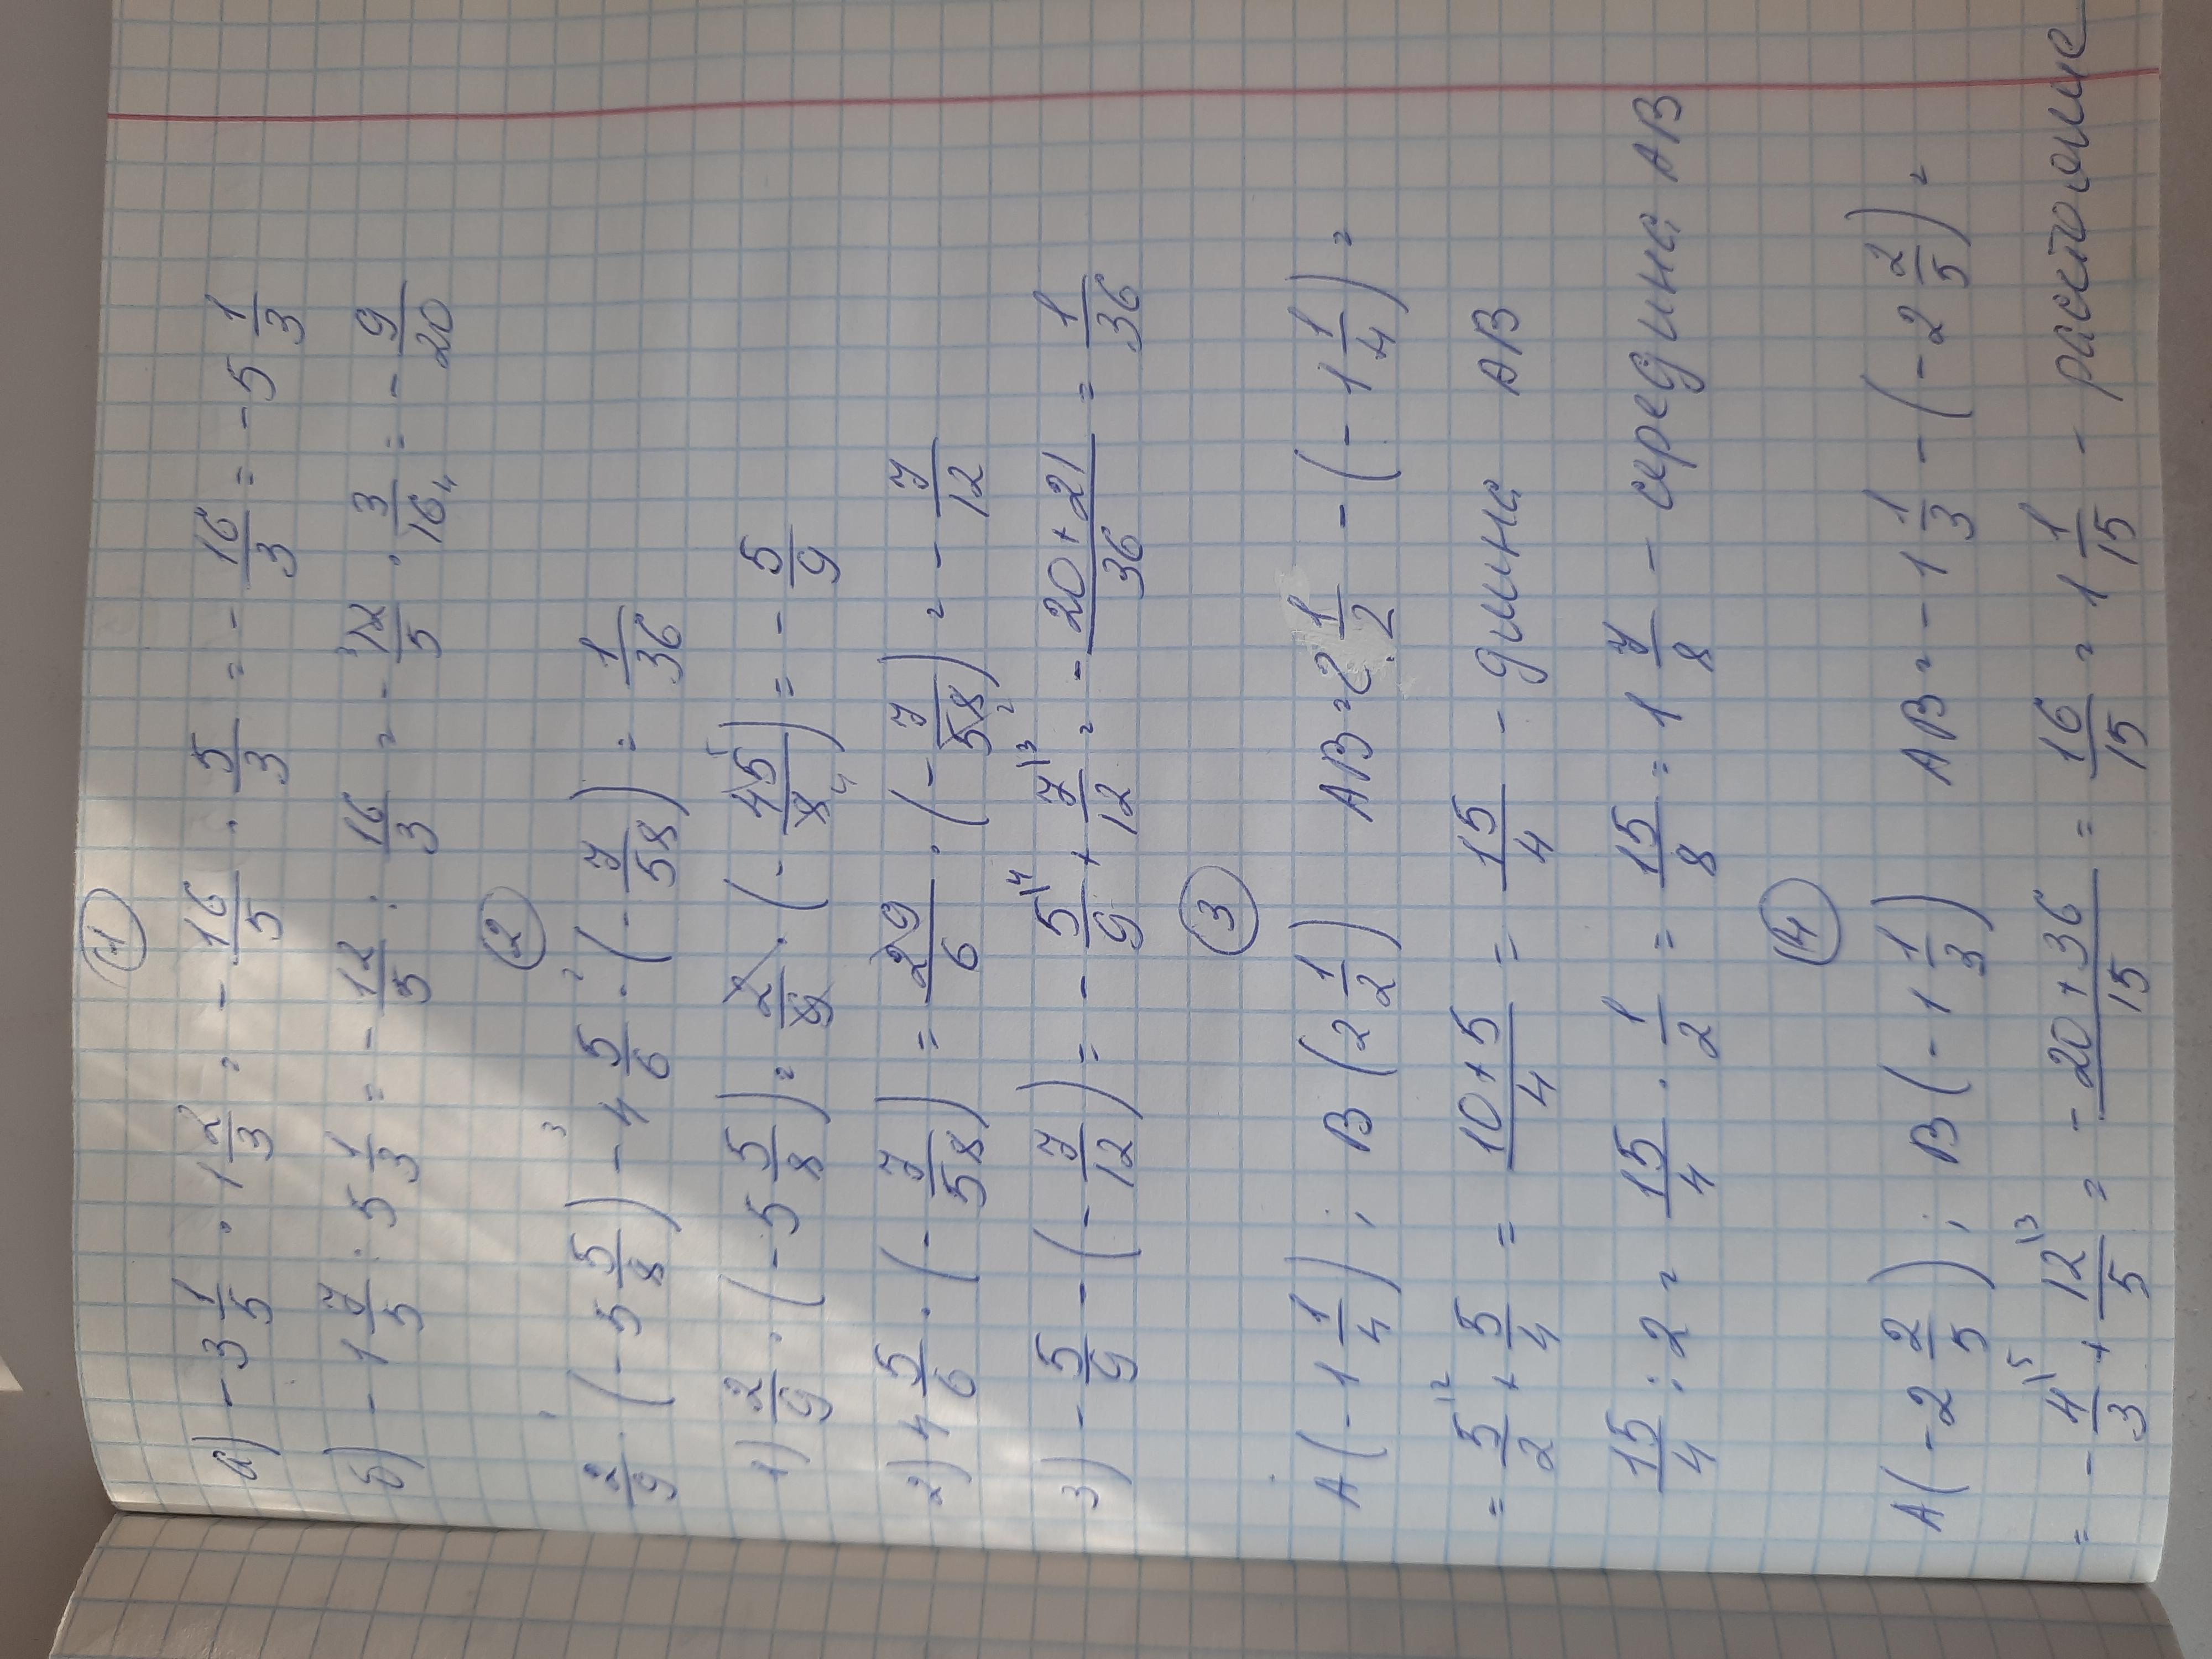 1
а) - 3 1/5 · 1 2/3 = - 16/5 · 5/3 = - 16/3 = - 5 1/3
б) - 1 7/5 : 5 1/3 = - 12/5 : 16/3 = - 12/5 · 3/16 = - 9/20
2
2/9 · (- 5 5/8) - 4 5/6 · (- 7/58) = 1/36
1) 2/9 · (- 5 5/8) = 2/9 · (- 45/8) = - 5/9
2) 4 5/6 · (- 7/58) = 29/6 · (- 7/58) = - 7/12
3) - 5/9 - (- 7/12) = - 5/9 + 7/12 = - 20+21/36 = 1/36
3
А(- 1 1/4); В(2 1/2) АВ = 2 1/2 - (- 1 1/4) =
= 5/2 + 5/4 = 10+5/4 = 15/4 - длина АВ
15/4 : 2 = 15/4 · 1/2 = 15/8 = 1 7/8 - середина АВ
4
А(- 2 2/5); В(- 1 1/3) АВ = - 1 1/3 - (- 2 2/5) =
= - 4/3 + 12/5 = - 20+36/15 = 16/15 = 1 1/15 - растояние